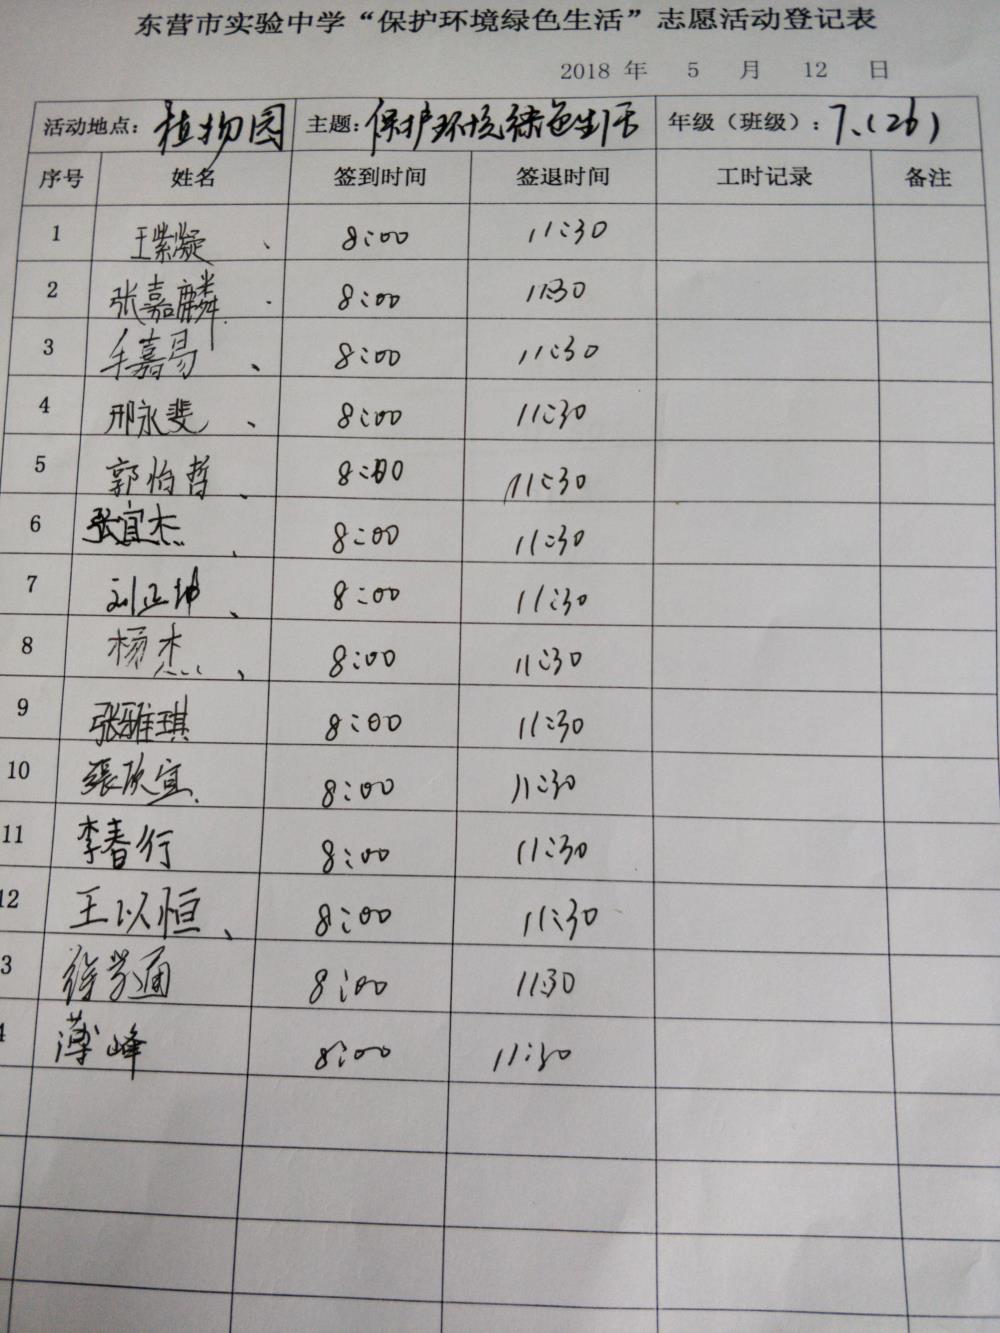 东营市实验中学“保护环境绿色生活”志愿活动登记表
2018 年 5 月 12 日
活动地点：植物园 主题：保护环境绿色生活 年级（班级）：7.(26)
序号 姓名 签到时间 签退时间 工时记录 备注
1 王紫凝 8:00 11:30
2 张嘉麟 8:00 11:30
3 嘉易 8:00 11:30
4 邢永斐 8:00 11:30
5 郭怡哲 8:00 11:30
6 张宜杰 8:00 11:30
7 刘正坤 8:00 11:30
8 杨杰 8:00 11:30
9 张雅琪 8:00 11:30
10 張欣宜 8:00 11:30
11 李春行 8:00 11:30
12 王以恒 8:00 11:30
3 徐学通 8:00 11:30
4 薄峰 8:00 11:30